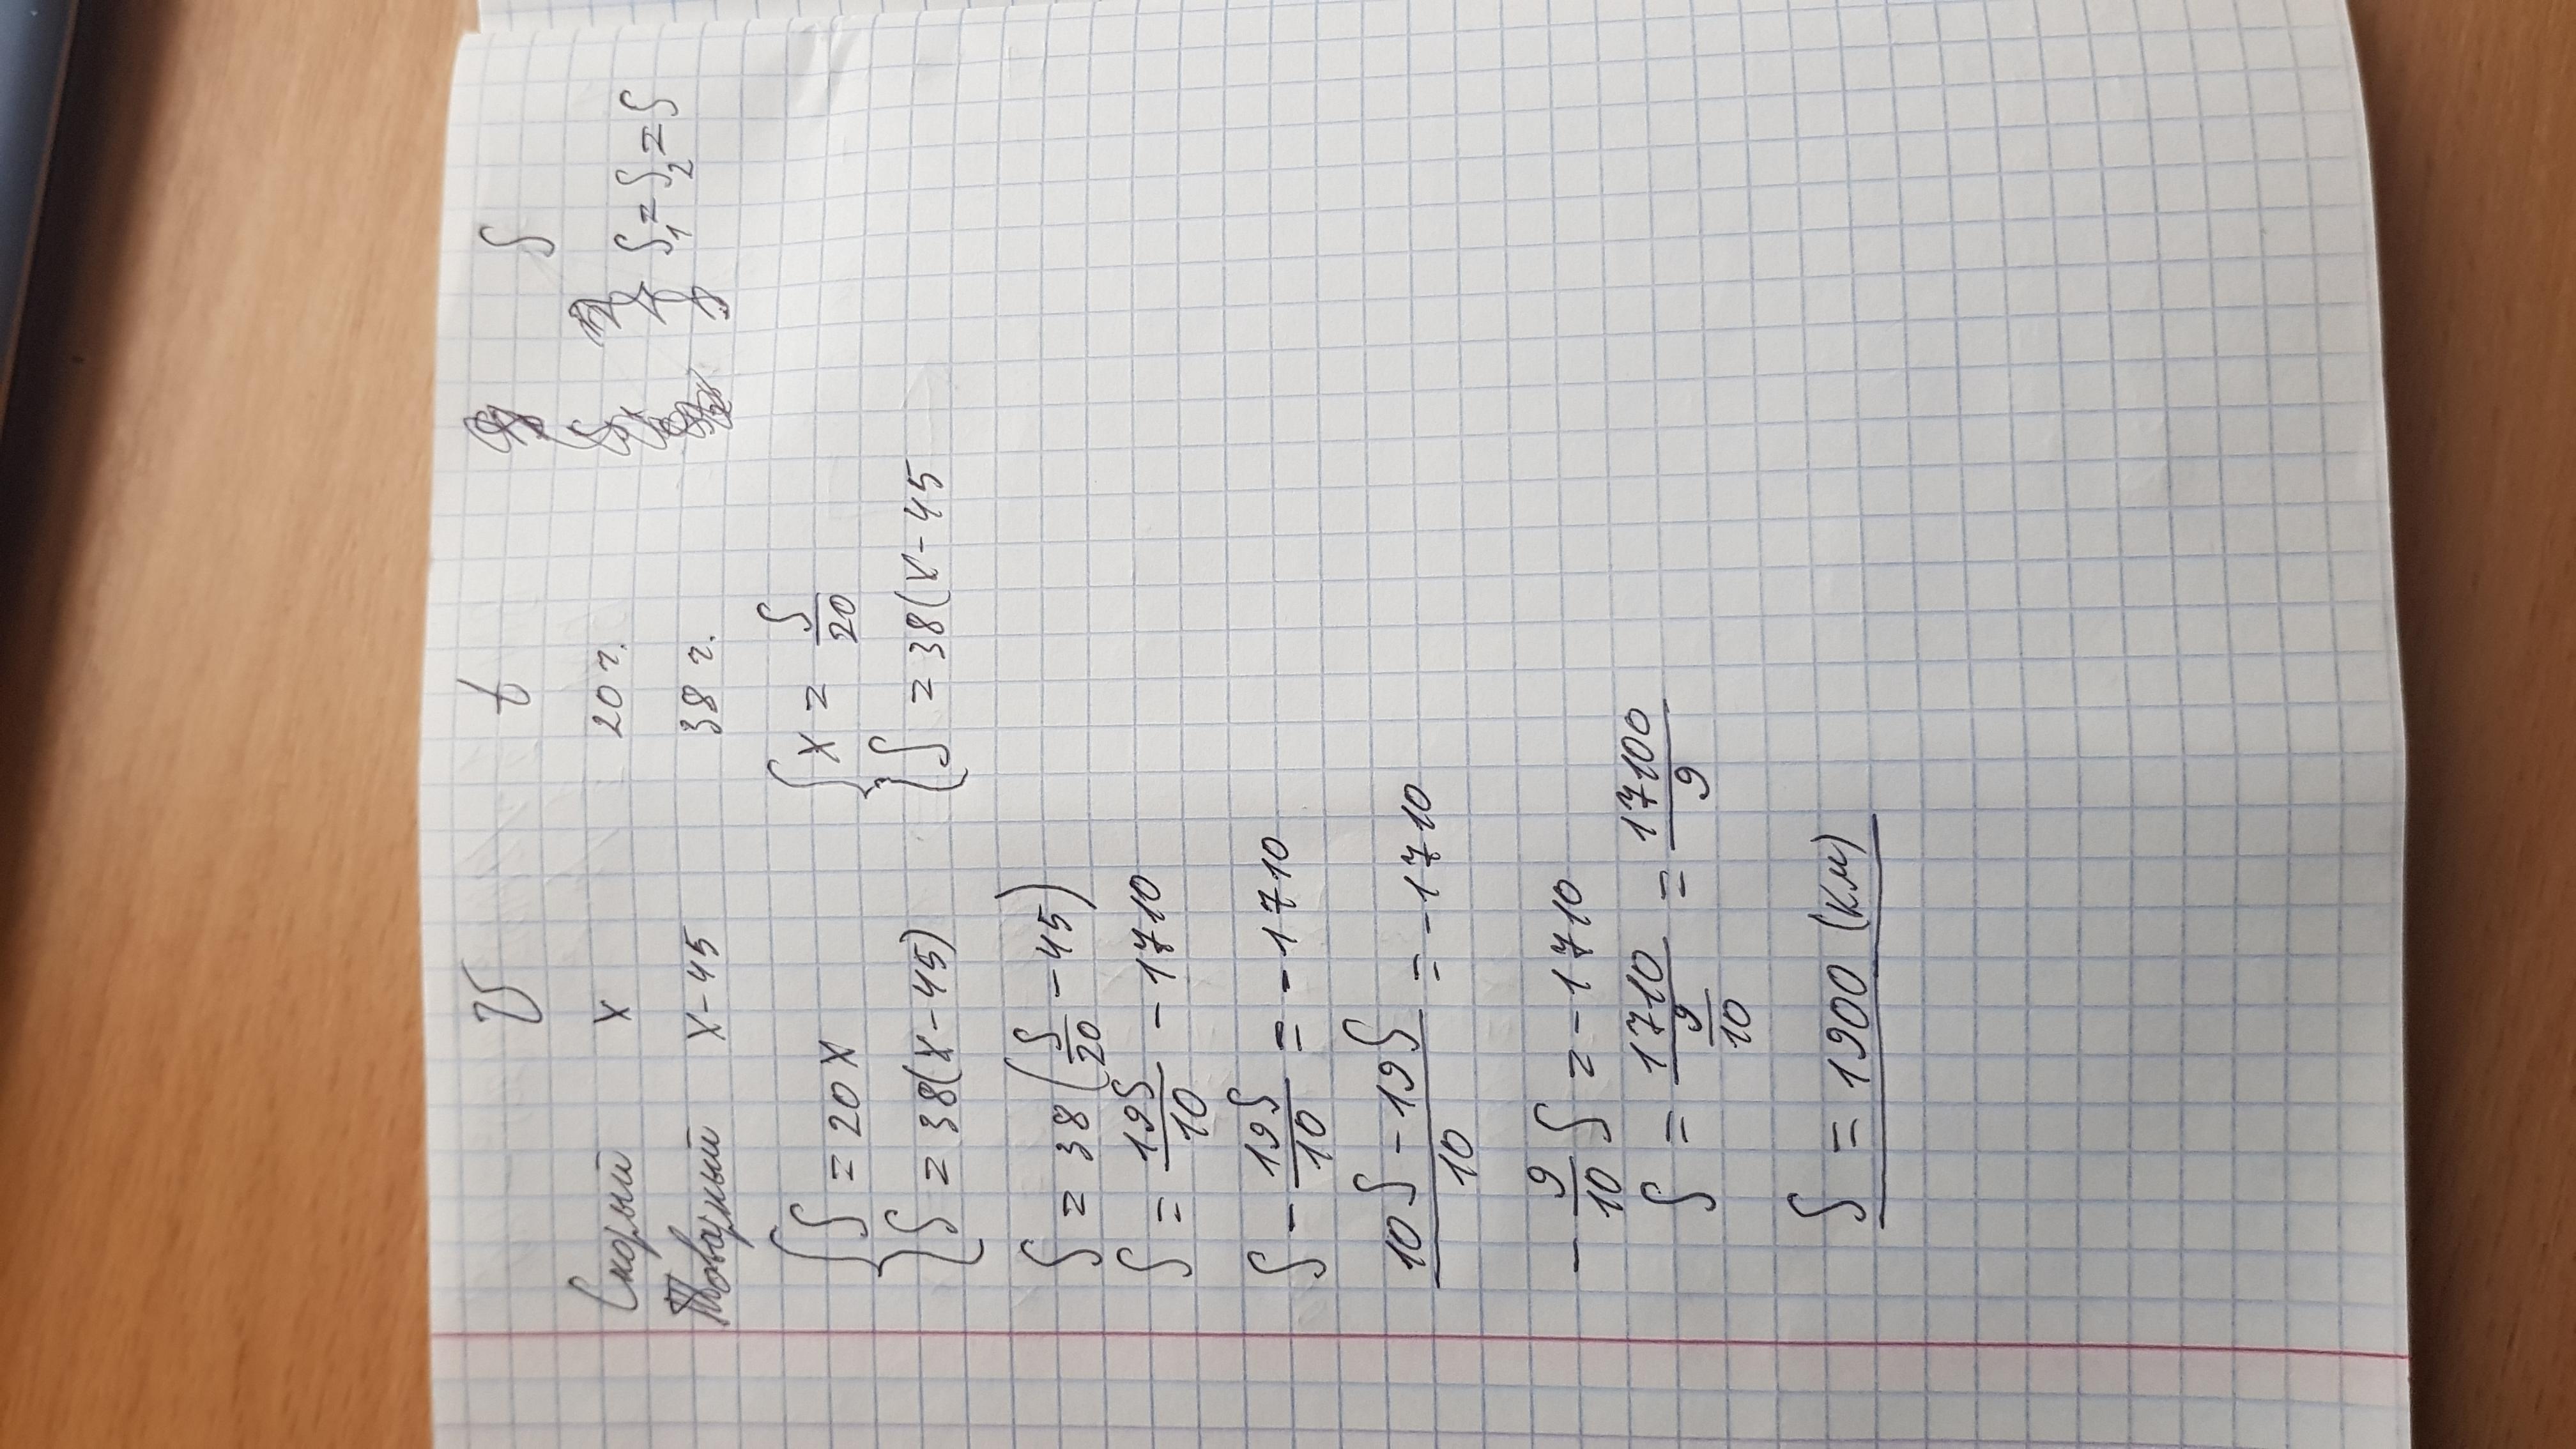 V t S
Скорый x 20 ч. S₁ = S₂ = S
Товарный x - 45 38 ч.
{ S = 20x { x = S/20
{ S = 38(x - 45) { S = 38(x - 45
S = 38(S/20 - 45)
S = 19S/10 - 1710
S - 19S/10 = -1710
10S - 19S/10 = -1710
-9/10 S = -1710
S = 1710/9/10 = 17100/9
S = 1900 (км)